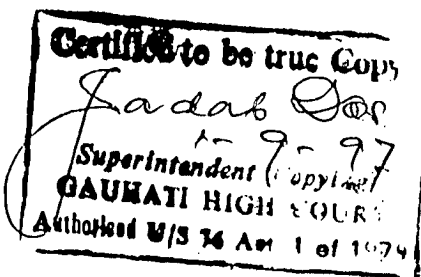 Certified to be true Copy
Jadab Das
1-9-97
Superintendent (Copying)
GAUHATI HIGH COURT
Authorised U/S 76 Act 1 of 1879